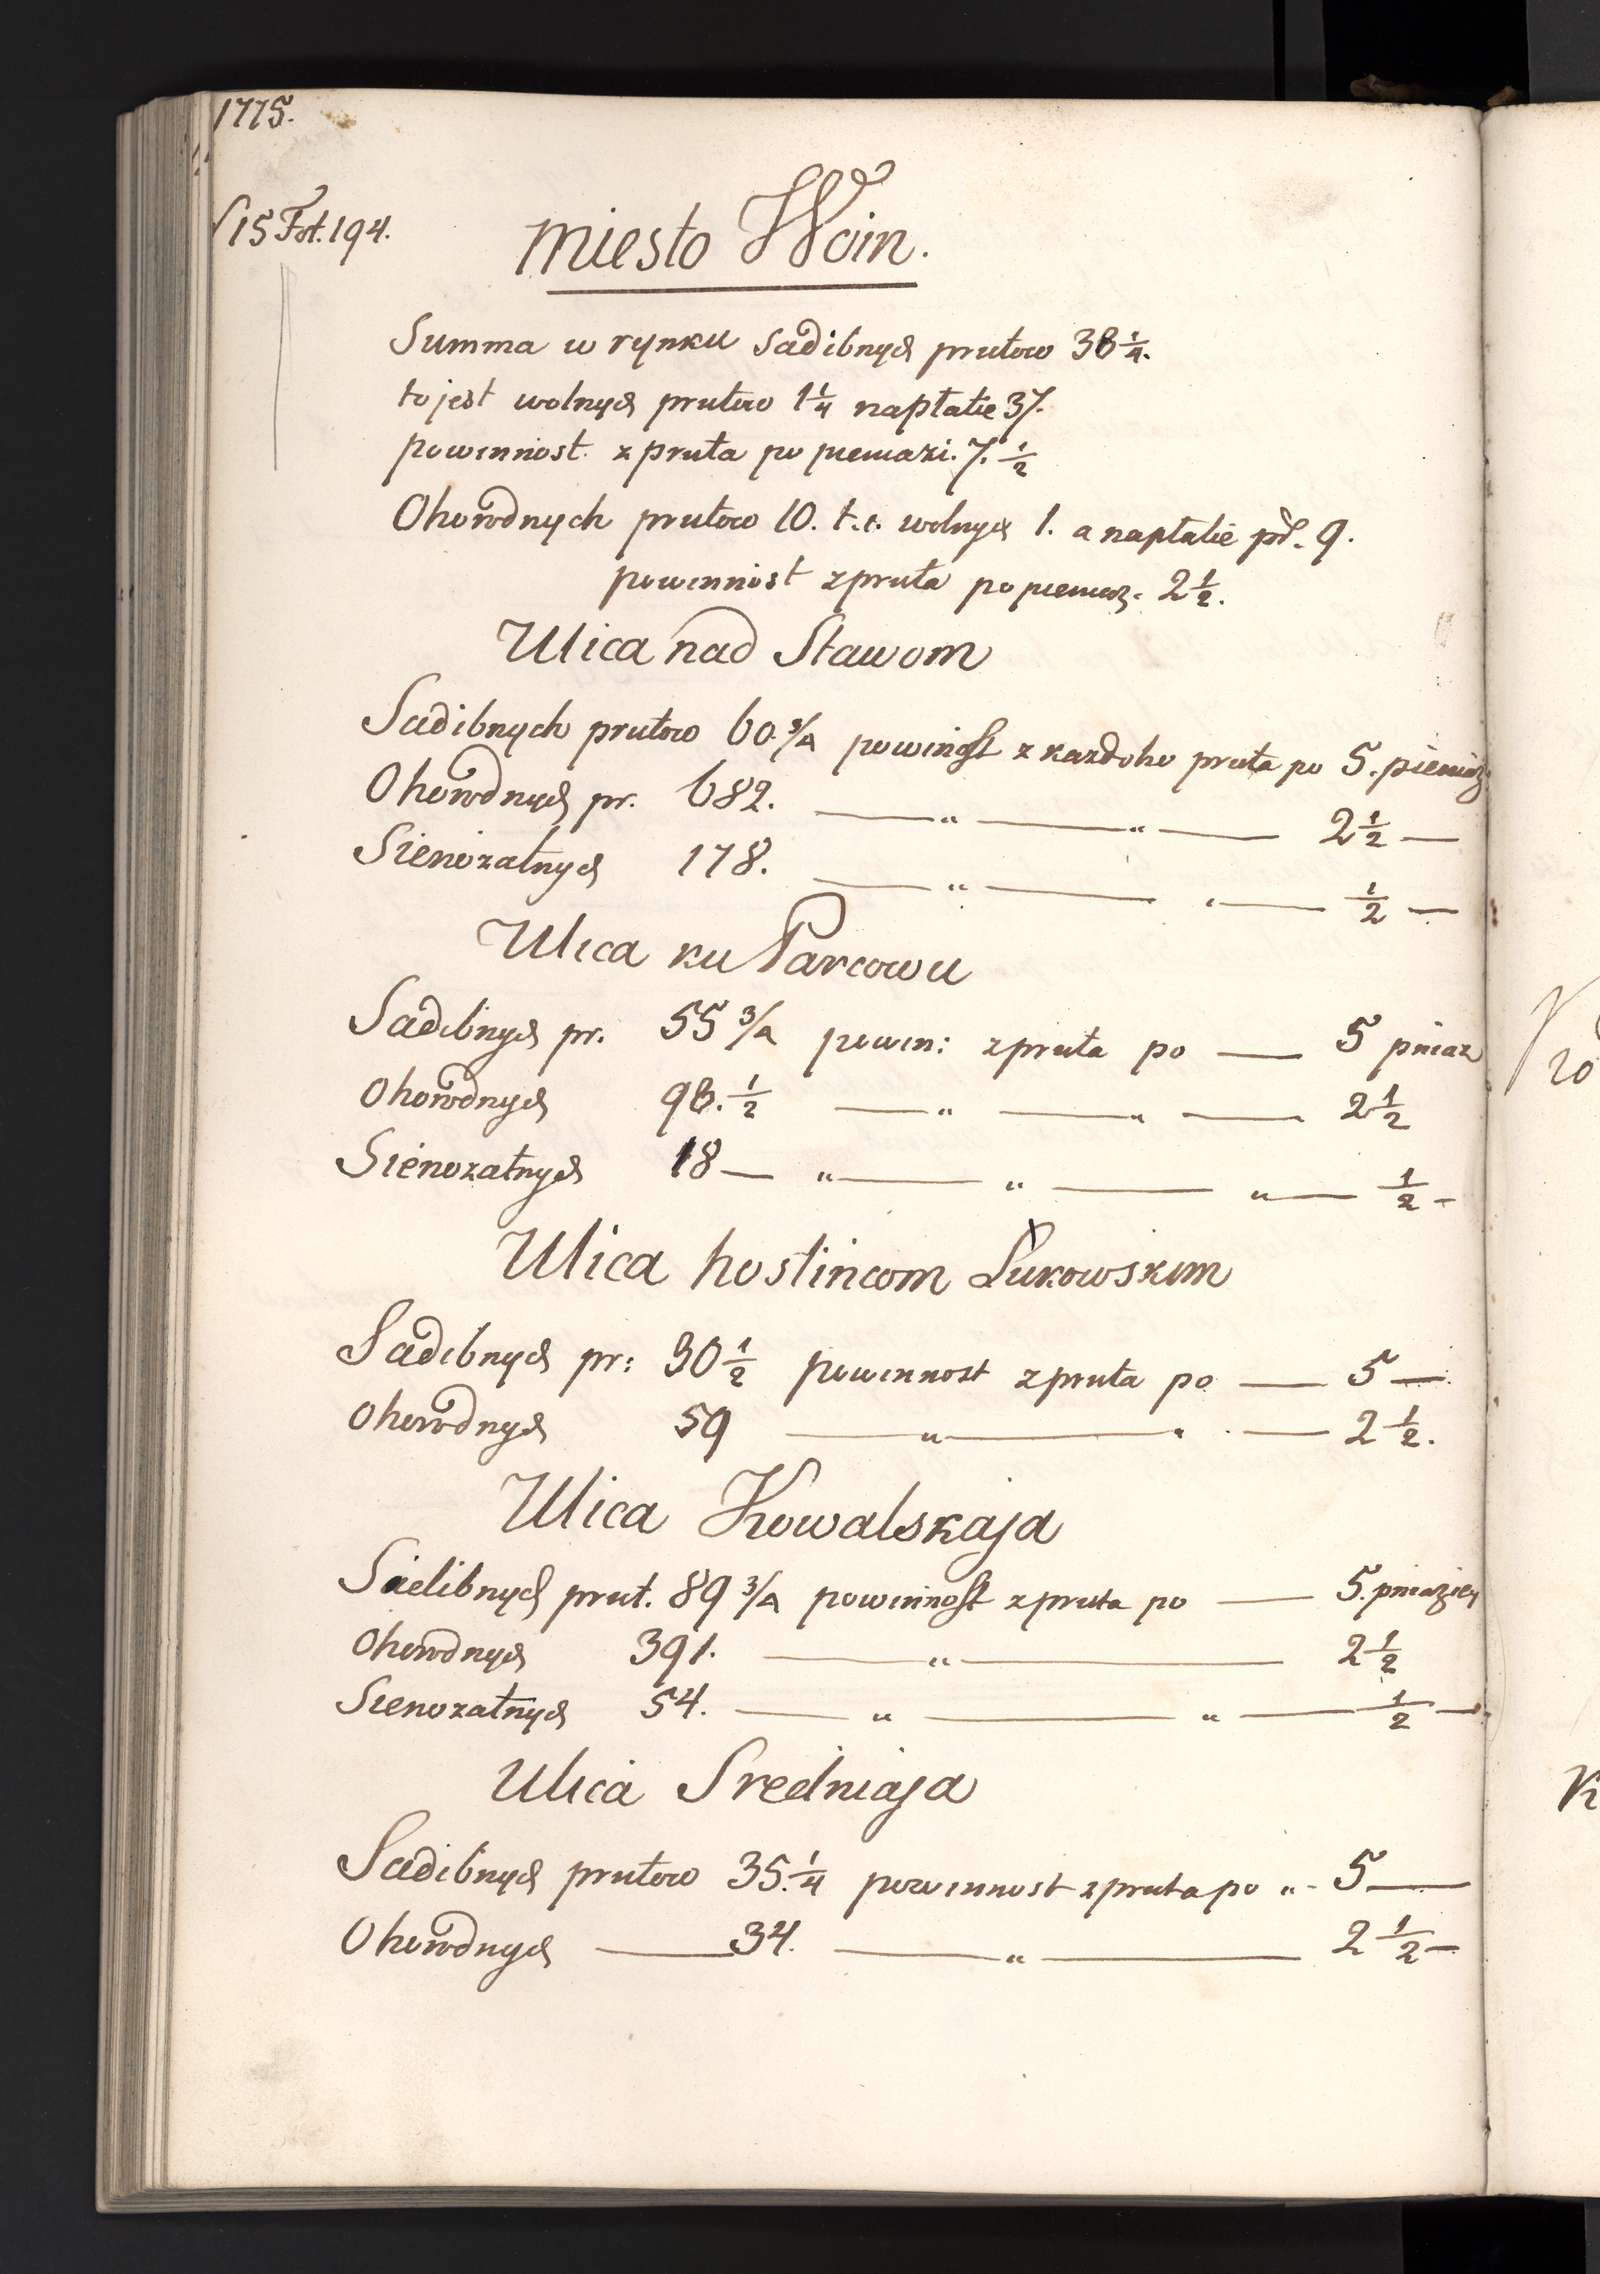 1775.
S 15 Fol. 194.
miesto Woin.
Summa w rynku sadibnych prutow 38 1/4.
to jest wolnych prutow 1 1/4 na płatie 37.
powinnost z pruta po pieniazi. 7. 1/2
Ohorodnych prutow 10. t. e. wolnych 1. a na płatie pr. 9.
powinnost z pruta po pieniaz. 2 1/2.
Ulica nad Stawom
Sadibnych prutow 60 3/4 powinost z kazdoho pruta po 5. pieniaz
Ohorodnych pr. 682. — " — " — 2 1/2 —
Sienozatnych 178. — " — " — 1/2 —
Ulica ku Parcowu
Sadibnych pr. 55 3/4 powin: z pruta po — 5 pniaz
Ohorodnych 98. 1/2 — " — " — 2 1/2
Sienozatnych 18 — " — " — " — 1/2 -
Ulica hostincom Łukowskim
Sadibnych pr: 30 1/2 powinnost z pruta po — 5 —
Ohorodnych 59 — " — " — 2 1/2.
Ulica Kowalskaja
Sielibnych prut. 89 3/4 powinnost z pruta po — 5. pniaziej
Ohorodnych 391. — " — 2 1/2
Sienozatnych 54. — " — " — 1/2 —
Ulica Sredniaja
Sadibnych prutow 35. 1/4 powinnost z pruta po " - 5 —
Ohorodnych — 34. — " — 2 1/2 —